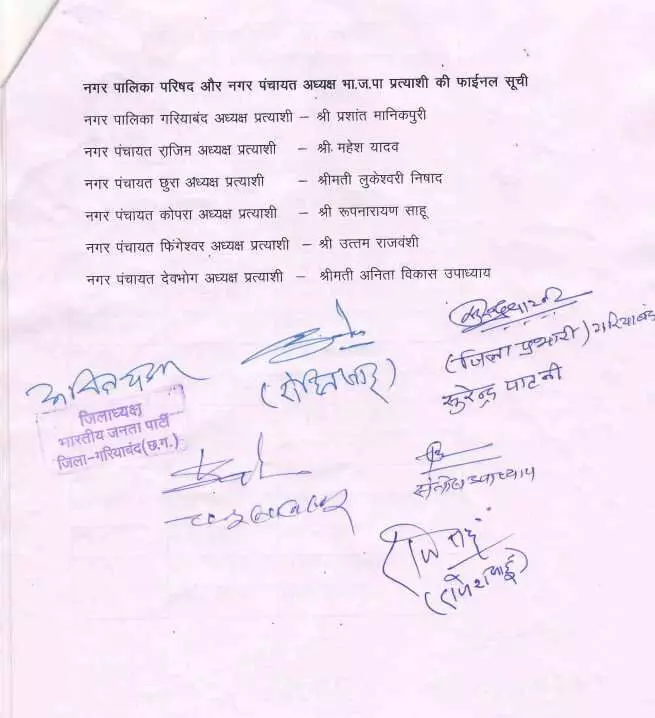 नगर पालिका परिषद और नगर पंचायत अध्यक्ष भा.ज.पा प्रत्याशी की फाईनल सूची
नगर पालिका गरियाबंद अध्यक्ष प्रत्याशी – श्री प्रशांत मानिकपुरी
नगर पंचायत राजिम अध्यक्ष प्रत्याशी – श्री महेश यादव
नगर पंचायत छुरा अध्यक्ष प्रत्याशी – श्रीमती लुकेश्वरी निषाद
नगर पंचायत कोपरा अध्यक्ष प्रत्याशी – श्री रूपनारायण साहू
नगर पंचायत फिंगेश्वर अध्यक्ष प्रत्याशी – श्री उत्तम राजवंशी
नगर पंचायत देवभोग अध्यक्ष प्रत्याशी – श्रीमती अनिता विकास उपाध्याय
(जिला प्रभारी) गरियाबंद
सुरेन्द्र पाटनी
जिलाध्यक्ष
भारतीय जनता पार्टी
जिला-गरियाबंद(छ.ग.)